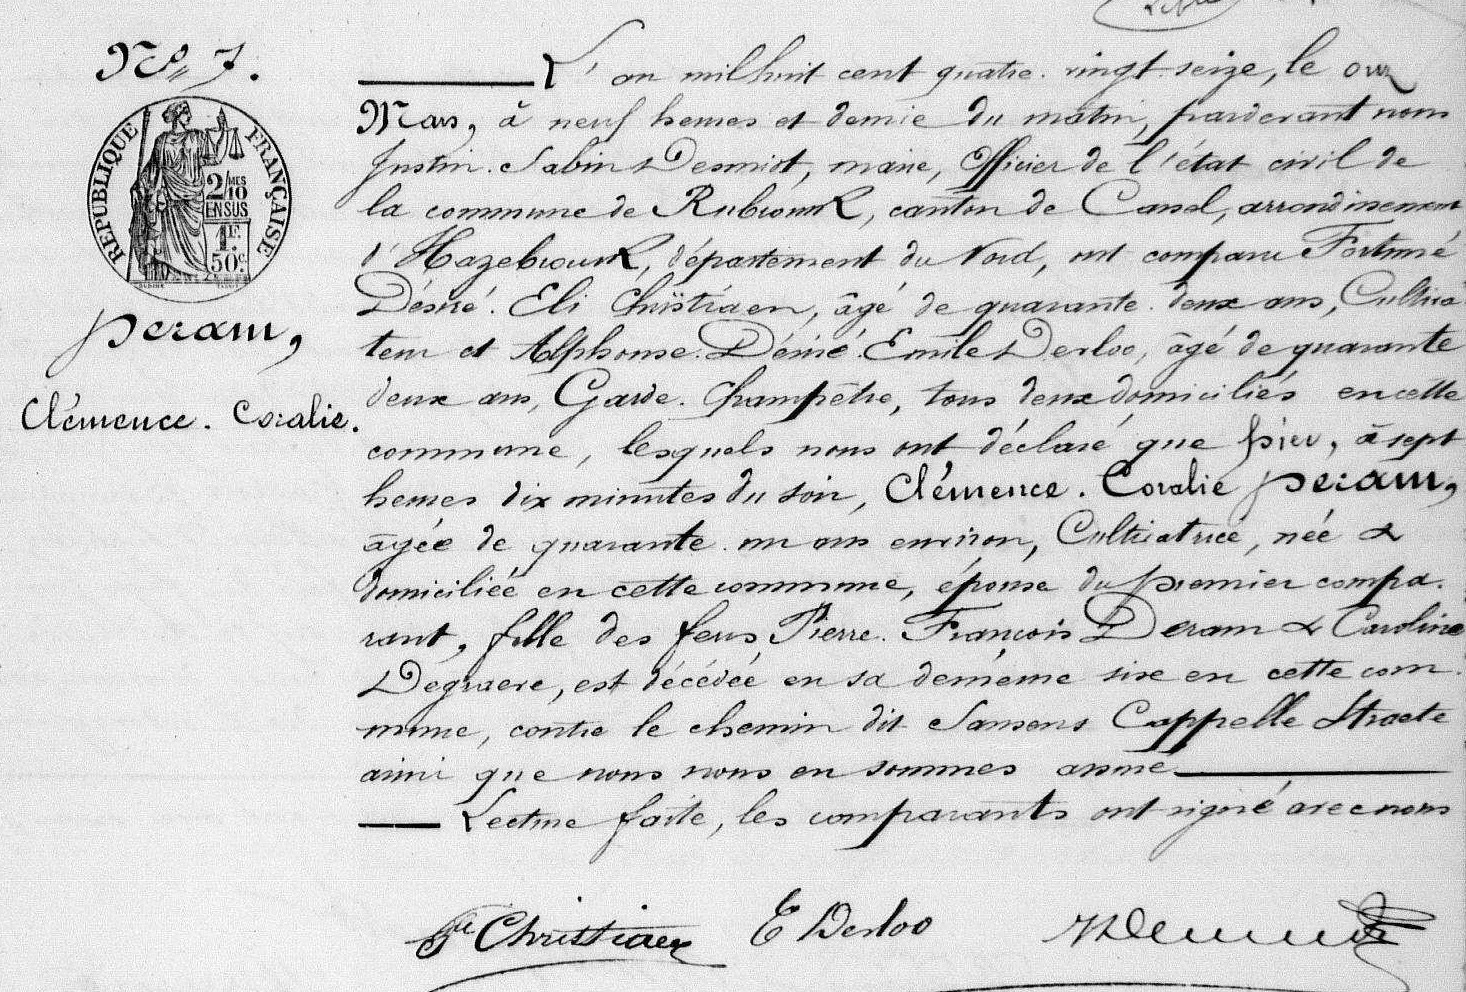 N° 7.
RÉPUBLIQUE FRANÇAISE
2/10 MES
EN SUS
1F.
50c
Deram,
Clémence. Coralie.
L'an mil huit cent quatre. vingt. seize, le onze
Mars, à neuf heures et demie du matin, pardevant nous
Justin. Sabin Desmidt, maire, Officier de l'état civil de
la commune de Rubrouck, canton de Cassel, arrondissement
d'Hazebrouck, département du Nord, ont comparu Fortuné
Désiré. Eli Christiaen, âgé de quarante. deux ans, Cultiva
teur et Alphonse. Désiré. Emile Derloo, âgé de quarante
deux ans, Garde. Champêtre, tous deux domiciliés en cette
commune, lesquels nous ont déclaré que hier, à sept
heures dix minutes du soir, Clémence. Coralie Deram,
âgée de quarante. un ans environ, Cultivatrice, née &
domiciliée en cette commune, épouse du premier compa.
rant, fille des feus Pierre. François Deram & Caroline
Degraere, est décédée en sa demeure sise en cette com.
mune, contre le chemin dit Sansens Cappelle Straete
ainsi que nous nous en sommes assuré
Lecture faite, les comparants ont signé avec nous
Fné Christiaen
E Derloo